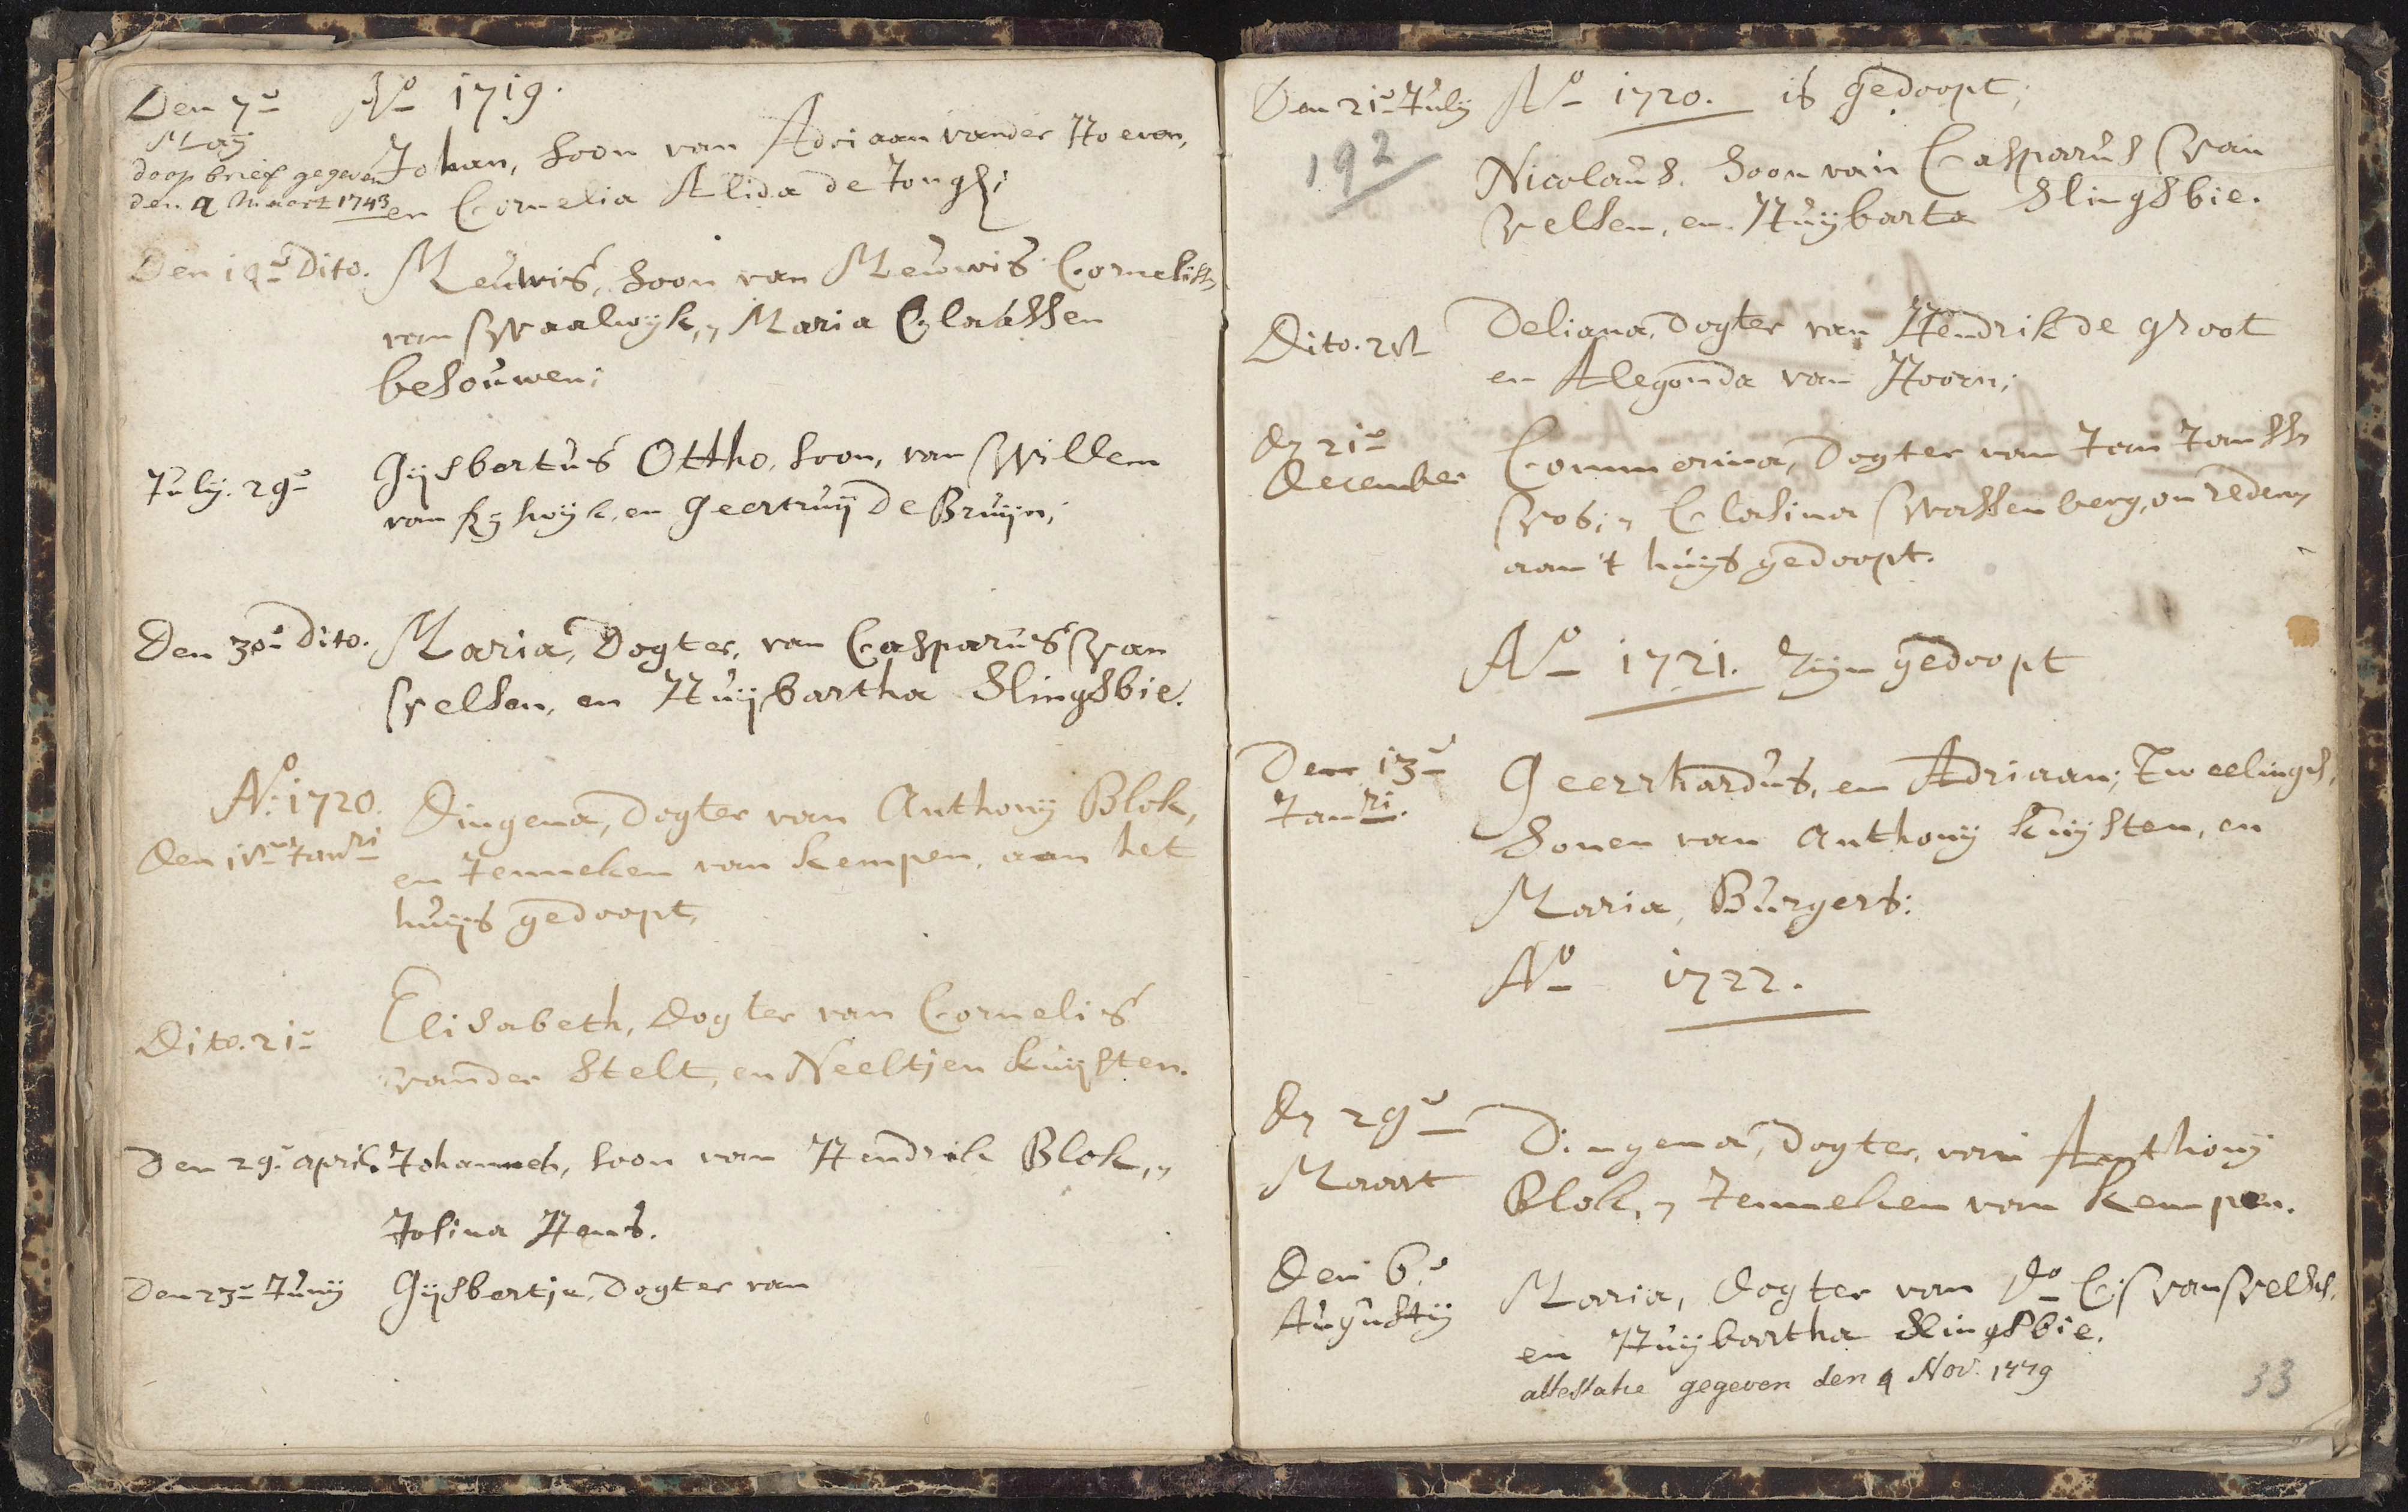 Den 7e Ao 1719.
May
doop brief gegeven Johan, soon van Adriaan vander Hoeven,
den 4 Maart 1743 en Cornelia Alida de Jongh;
Den 14e Dito. Meuwis, soon van Meuwis Corneliss,
van Waalwyk, Maria Claassen
besouwen;
July. 29e Gijsbertus Ottho, soon, van Willem
van en Geertruij De Bruijn;
Den 30e Dito. Maria, Dogter, van Casparus Van
Velsen, en Huijbartha Slingsbie.
Ao. 1720. Dingena, Dogter van Anthonij Blok,
Den Janri en Jenneken van Kempen, aan het
huijs gedoopt,
Dito. 21e Elisabeth, Dogter van Cornelis
vander Stelt, en Neeltjen Kuijsten.
Den 29e april. Johannes, soon van Hendrik Blok,
Josina Hens.
Den 23e Junij Gijsbertje, Dogter van
Den 21e July Ao 1720. is gedoopt;
192
Nicolaus. Soon van Casparus Van
Velsen, en Huijbarta Slingsbie.
Dito. Deliana, Dogter van Hendrik de groot
en Alegonda van Hoorn;
21e Commerina, Dogter van Jan Janss
December
Vos; Clasina Wassenberg, om reden
aan 't huijs gedoopt.
Ao 1721. Zijn gedoopt
Den 13e
Janri. Geerrhardus, en Adriaan; Tweelingh,
Sonen van Anthonij Kuijsten, en
Maria, Burgers:
Ao 1722.
29e
Maart Dingena, Dogter, van Anthonij
Blok, Jenneken van Kempen.
Den 6e
Augustij Maria, Dogter van Do C: van Velse,
en Huijbartha Slingsbie.
attestatie gegeven den 4 Nov. 1779
33